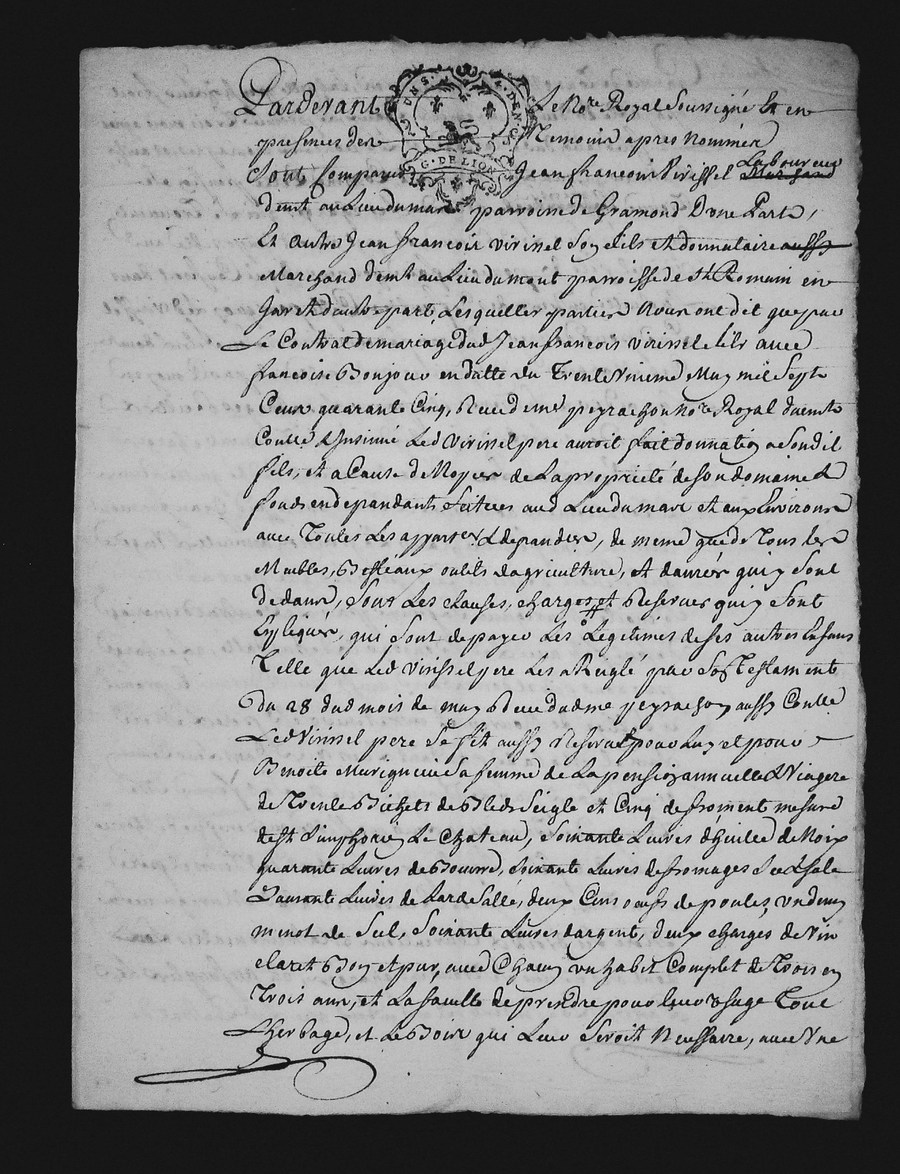 Pardevant Le No.re Royal Soussigné Et en
presences des Temoins apres nommés
G. DE LION
Sont Comparus Jean francois Virissel Laboureur Marchand
demt au Lieu du mas parroisse de Gramond Dune Part,
Et autre Jean francois virissel Son fils et donnataire aussy
Marchand demt au Lieu du mont parroisse de St Romain en
Jar Et dautre part, Lesquelles parties Nous ont dit que par
Le Contrat de mariage dud Jean francois virissel fils avec
francoise Bonjour en datte du Trente unieme May mil Sept
Cens quarante Cinq, Receu de me peyrachon No.re Royal duemt
Contlé & Insinué Led Virissel pere auroit fait donnation a Sondit
fils, et a Cause de Noces de La proprieté de son domaine &
fonds en dependants Scitues aud Lieu du mas et aux Environs
avec Toutes Les appartces & dependces, de meme que de Tous les
Meubles, Bestiaux outils dagriculture, et danrées qui y Sont
dedans, Sous Les clauses, charges et Reserves qui y Sont
Expliqués, qui Sont de payer Les Legitimes de Ses autres Enfans
Telle que Led virissel pere Les a Reiglé par Son Testament
du 28 dud mois de may Receu dud me peyrachon aussy Contlé
Led Virissel pere Se fit aussy Reserve pour Luy et pour
Benoite Sa femme de La pension annuelle & Viagere
de Trente Bichets de Bled Seigle et Cinq de froment mesure
de St Simphorien Le Chateau, Soixante Livres dhuille de Noix
quarante Livres de Beurre, Soixante Livres de fromages Sec & Salé
quarante Livres de Lard Sallé, deux Cens oeufs de poules, un demy
minot de Sel, Soixante Livres dargent, deux charges de Vin
claret Bon et pur, avec Chacun un habit Complet de Trois en
Trois ans, et La faculté de prendre pour leur usage Tout
Lherbage, et Le Bois qui Leur Seroit Necessaire, avec Une